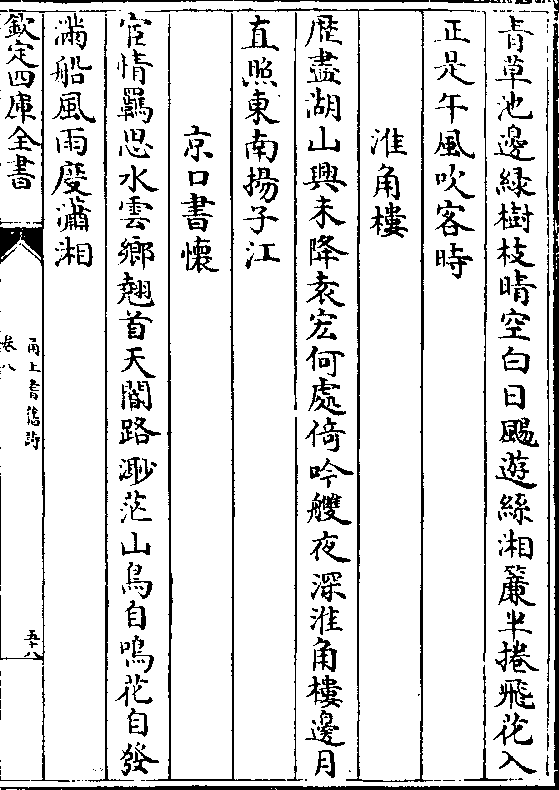 青草池邊緑樹枝晴空白日颺遊絲湘簾半捲飛花入
正是午風吹客時
淮角樓
歴盡湖山興未降袁宏何處倚吟艭夜深淮角樓邊月
直照東南揚子江
京口書懷
宦情羈思水雲鄉翹首天閽路渺茫山鳥自鳴花自發
滿船風雨度瀟湘
欽定四庫全書
甬上耆舊詩
卷八
五十八